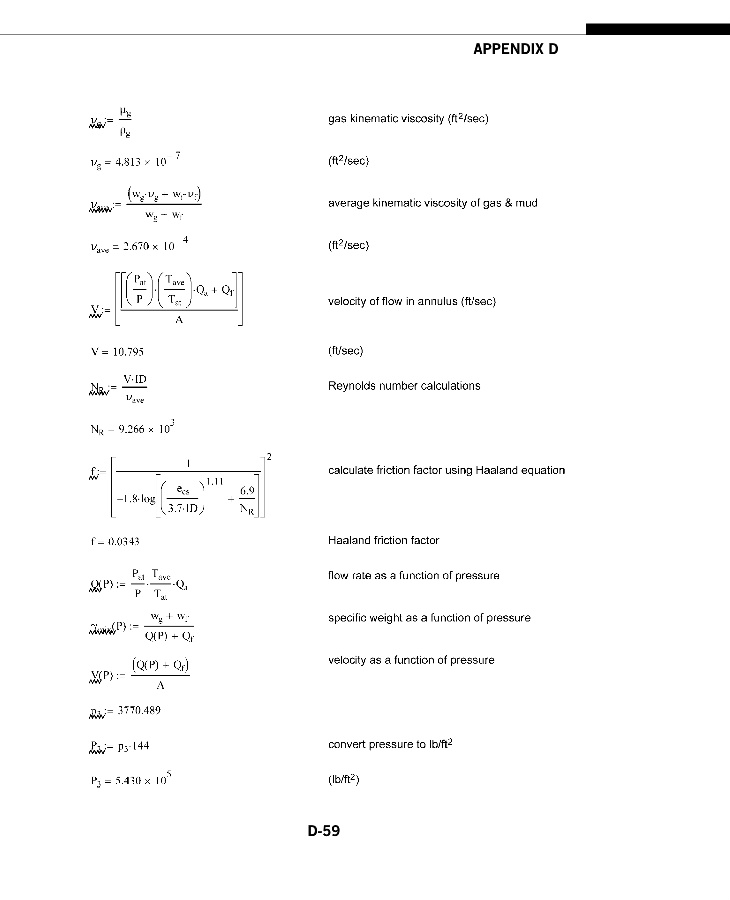 APPENDIX D
ν_g := μ_g / ρ_g gas kinematic viscosity (ft²/sec)
ν_g = 4.813 × 10⁻⁷ (ft²/sec)
ν_ave := (w_g·ν_g + w_f·ν_f) / (w_g + w_f) average kinematic viscosity of gas & mud
ν_ave = 2.670 × 10⁻⁴ (ft²/sec)
V := [[[(P_at / P)·(T_ave / T_at)·Q_a + Q_f]] / A] velocity of flow in annulus (ft/sec)
V = 10.795 (ft/sec)
N_R := V·ID / ν_ave Reynolds number calculations
N_R = 9.266 × 10³
f := [1 / (−1.8·log[(e_cs / 3.7·ID)^1.11 + 6.9 / N_R])]² calculate friction factor using Haaland equation
f = 0.0343 Haaland friction factor
Q(P) := P_at / P · T_ave / T_at · Q_a flow rate as a function of pressure
γ_mix(P) := (w_g + w_f) / (Q(P) + Q_f) specific weight as a function of pressure
V(P) := (Q(P) + Q_f) / A velocity as a function of pressure
p_3 := 3770.489
P_3 := p_3·144 convert pressure to lb/ft²
P_3 = 5.430 × 10⁵ (lb/ft²)
D-59